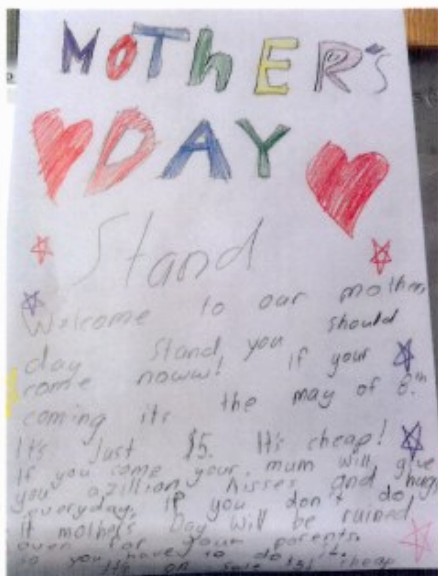 MOTHER'S
DAY
Stand
Welcome to our mothers
day stand you should
come noww! If your
coming its the may of 8th
It's Just $5. It's cheap!
If you come your mum will give
you a zillion kisses and hugs
everyday. If you don't do
it mothers Day will be ruined
even for your parents.
so you have to do it.
It's on sale cheap